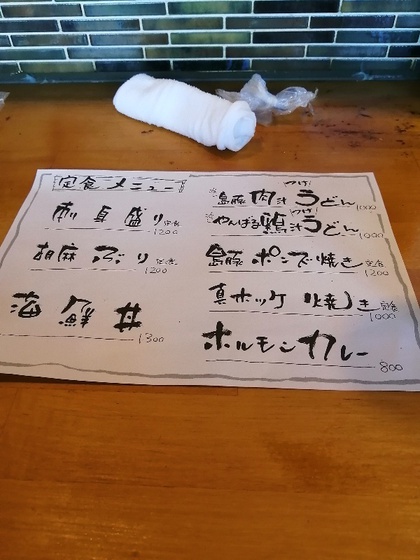 定食メニュー
刺身盛り定食
1200
胡麻ぶり定食
1200
海鮮丼
1300
※島豚肉汁つけうどん
1000
※やんばる鶏汁つけうどん
1000
島豚ポンズ焼き定食
1200
真ホッケ焼き定食
1000
ホルモンカレー
800